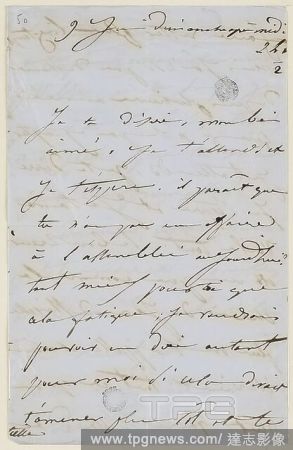 50
9 Juin dimanche après midi
2 h ½
Je te désire, mon bien
aimé, je t'attends et
je t'espère. il paraît que
tu n'as pas eu affaire
à l'assemblée aujourd'hui
tant mieux pour toi que
cela fatigue ; je voudrais
pouvoir en dire autant
pour moi si cela devait
t'amener plus tôt et te
TPG
www.tpgnews.com / 達志影像